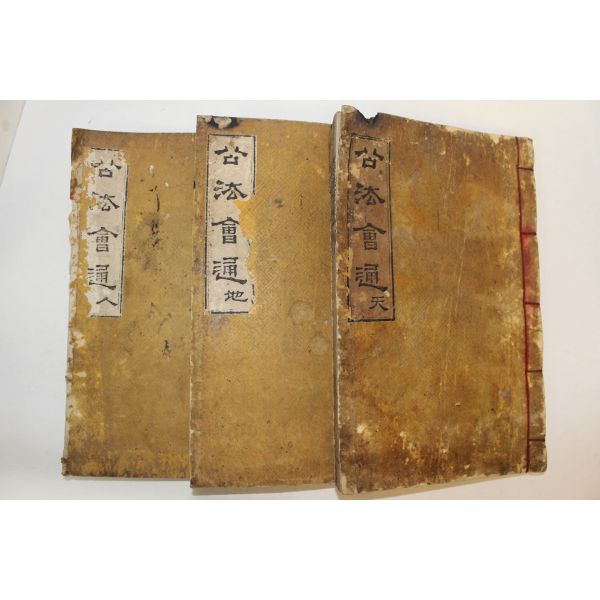 公法會通天
公法會通地
公法會通人